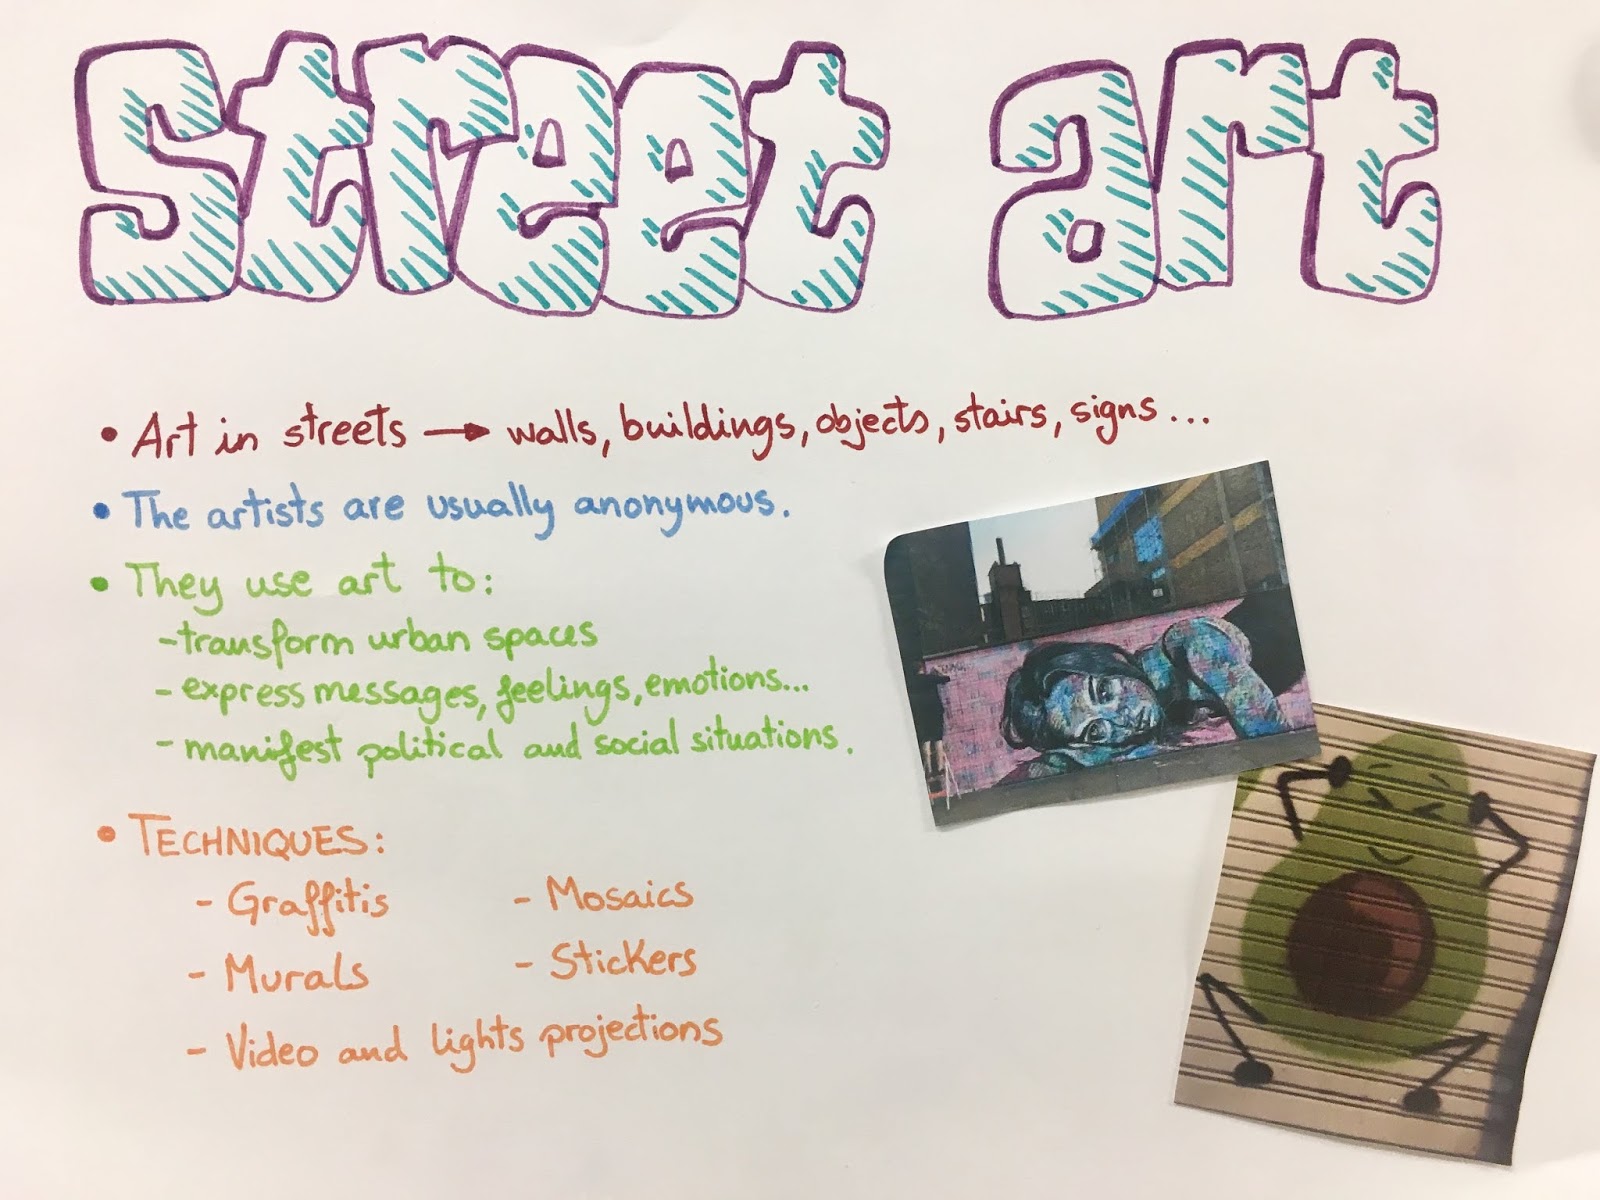 Street art
• Art in streets → walls, buildings, objects, stairs, signs...
• The artists are usually anonymous.
• They use art to:
- transform urban spaces
- express messages, feelings, emotions...
- manifest political and social situations.
• TECHNIQUES:
- Graffitis
- Mosaics
- Murals
- Stickers
- Video and lights projections